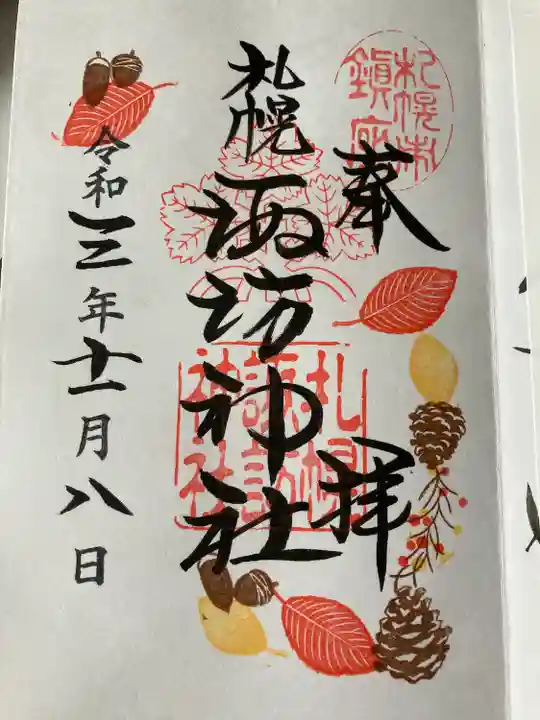 札幌市
鎮座
奉拝
札幌
諏訪神社
札幌
諏訪
神社
令和三年十一月八日